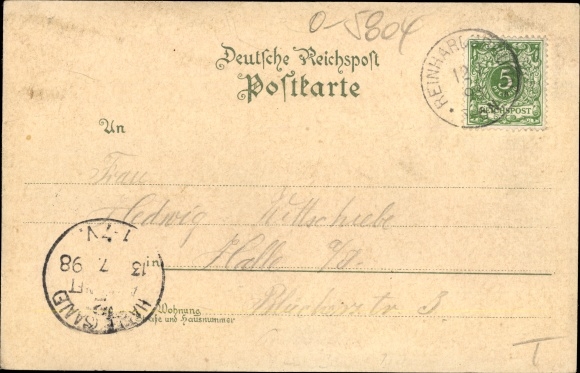 0-5804
Deutsche Reichspost
Postkarte
5
REICHSPOST
REINHARD
12
An
Frau
Hedwig Wittschiebe
in Halle a/S.
Blücherstr 3.
Wohnung
Straße und Hausnummer
HALLE (SAALE)
13 7 98
1-2N.
I